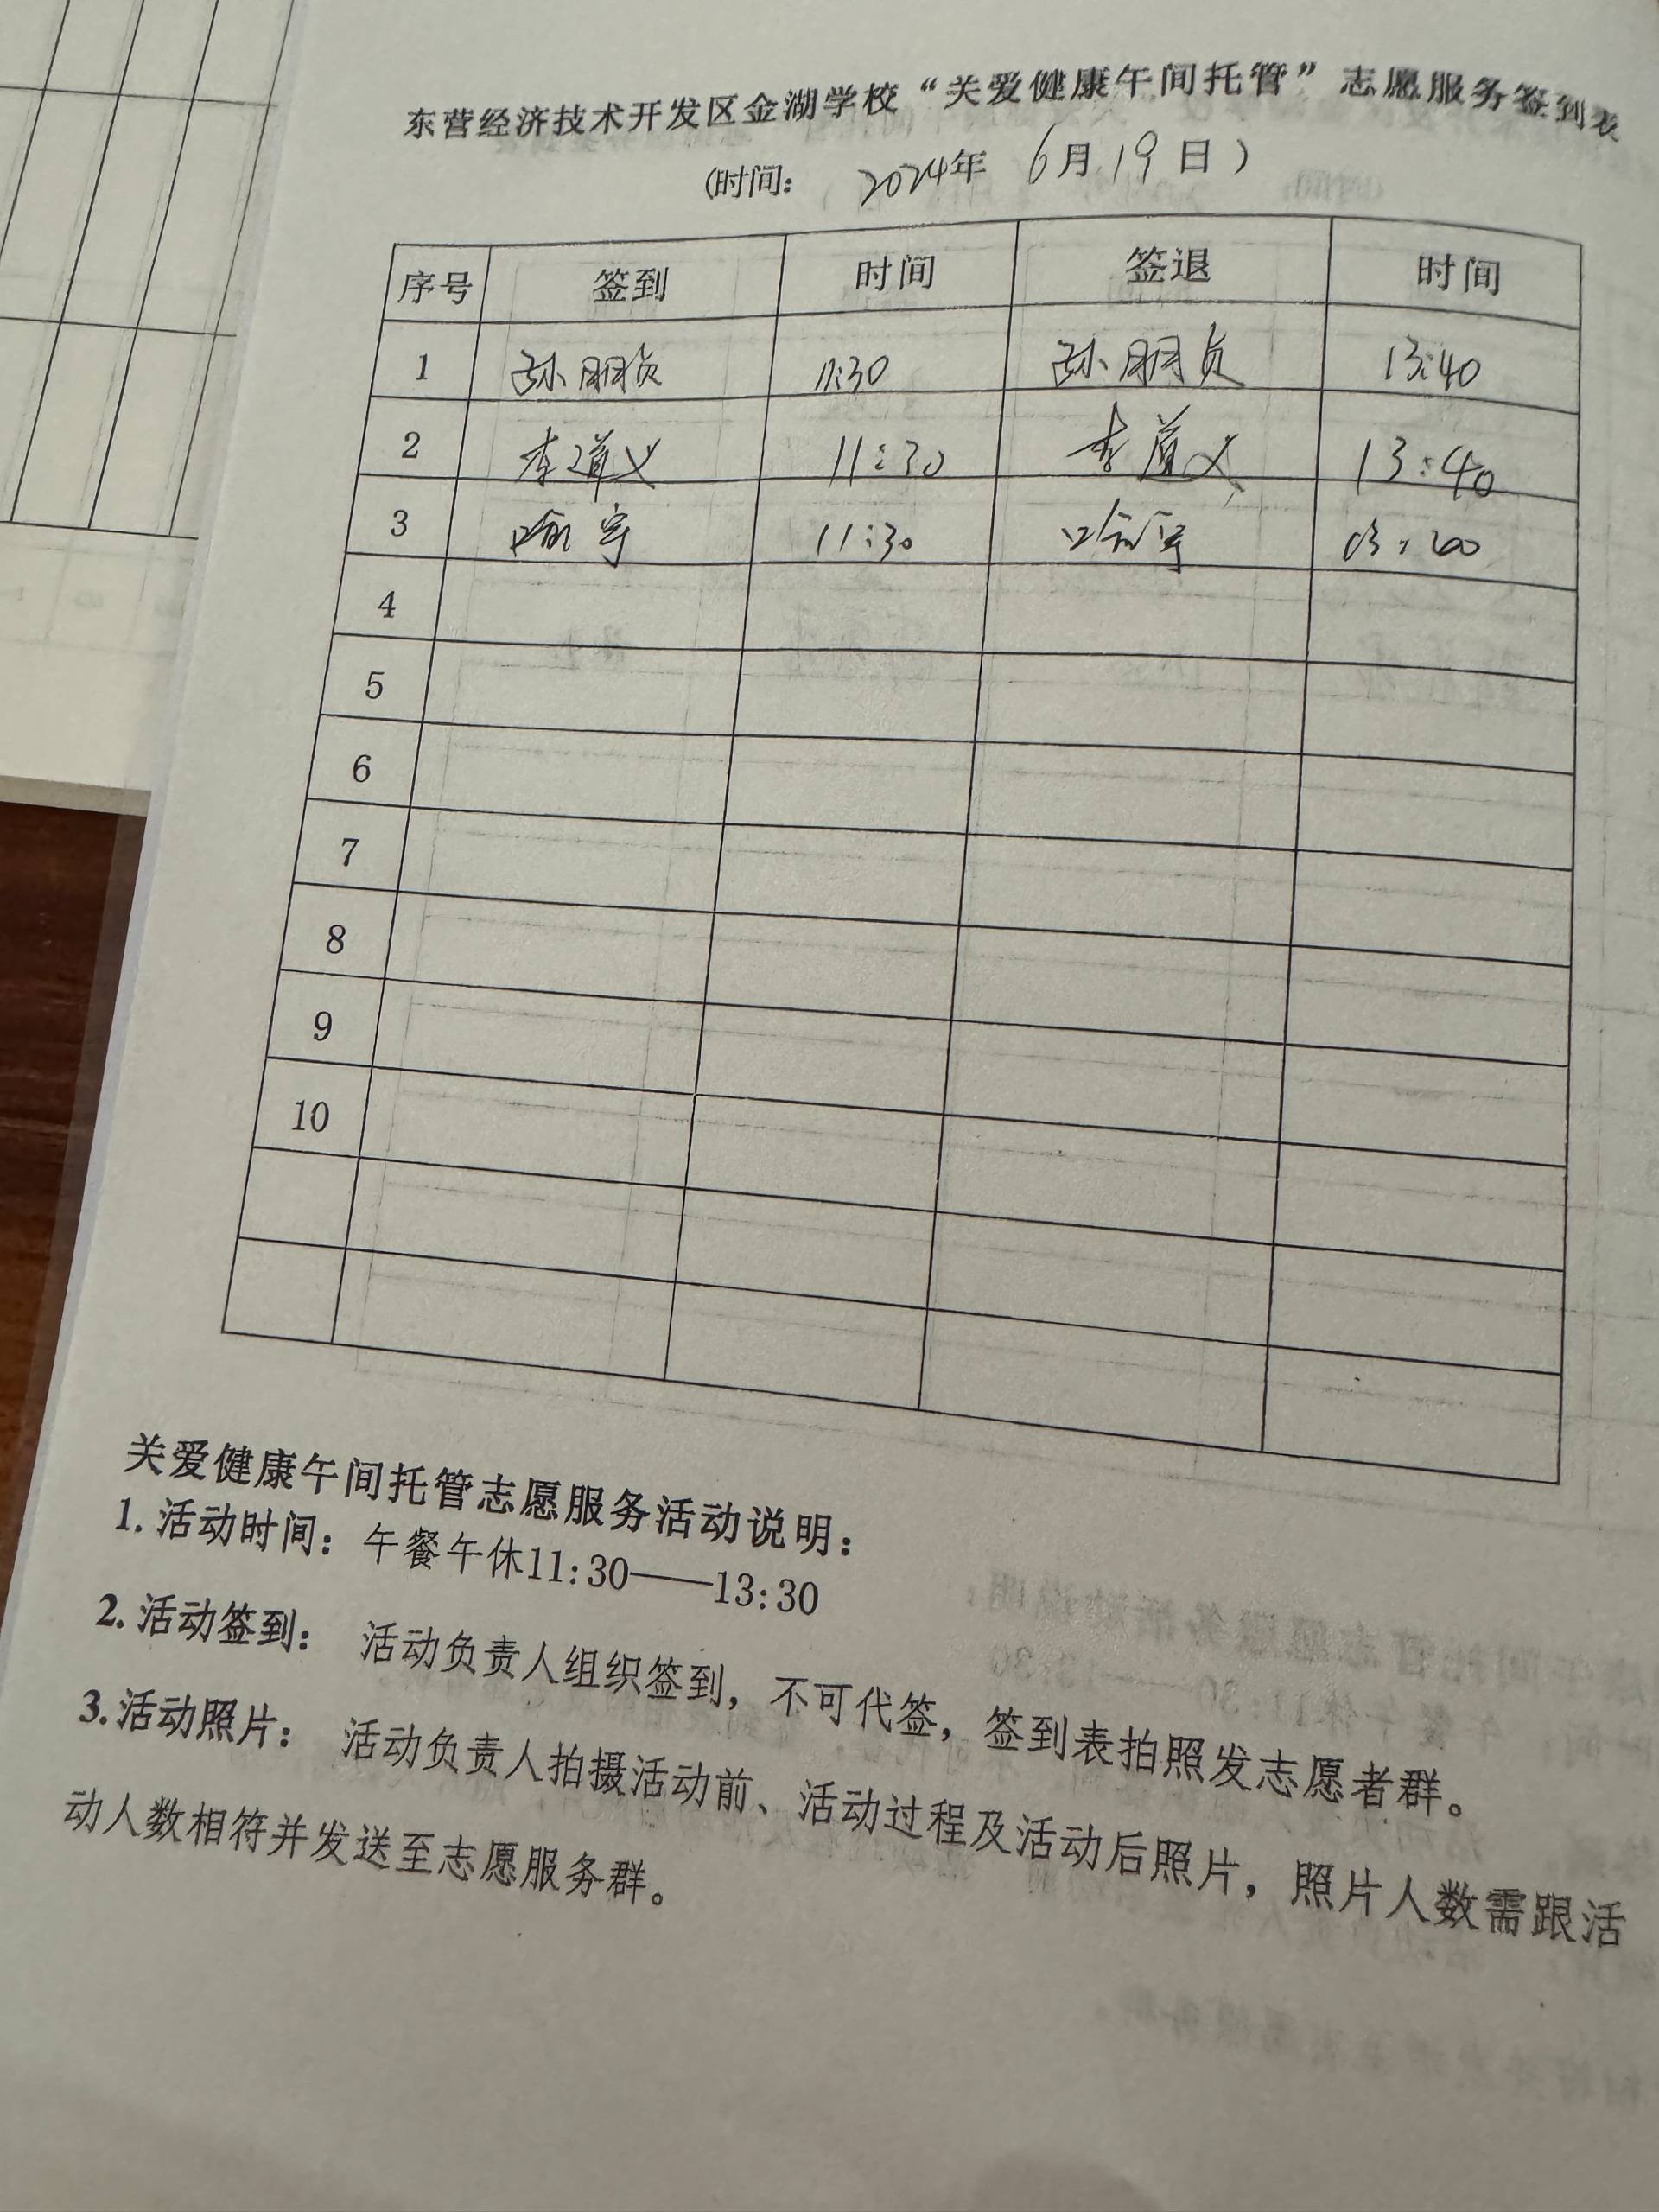 东营经济技术开发区金湖学校“关爱健康午间托管”志愿服务签到表
(时间: 2024年 6月19日)
序号 签到 时间 签退 时间
1 孙朋贞 11:30 孙朋贞 13:40
2 李道义 11:30 李道义 13:40
3 11:30
4
5
6
7
8
9
10
关爱健康午间托管志愿服务活动说明:
1.活动时间: 午餐午休11:30——13:30
2.活动签到: 活动负责人组织签到,不可代签,签到表拍照发志愿者群。
3.活动照片: 活动负责人拍摄活动前、活动过程及活动后照片,照片人数需跟活
动人数相符并发送至志愿服务群。